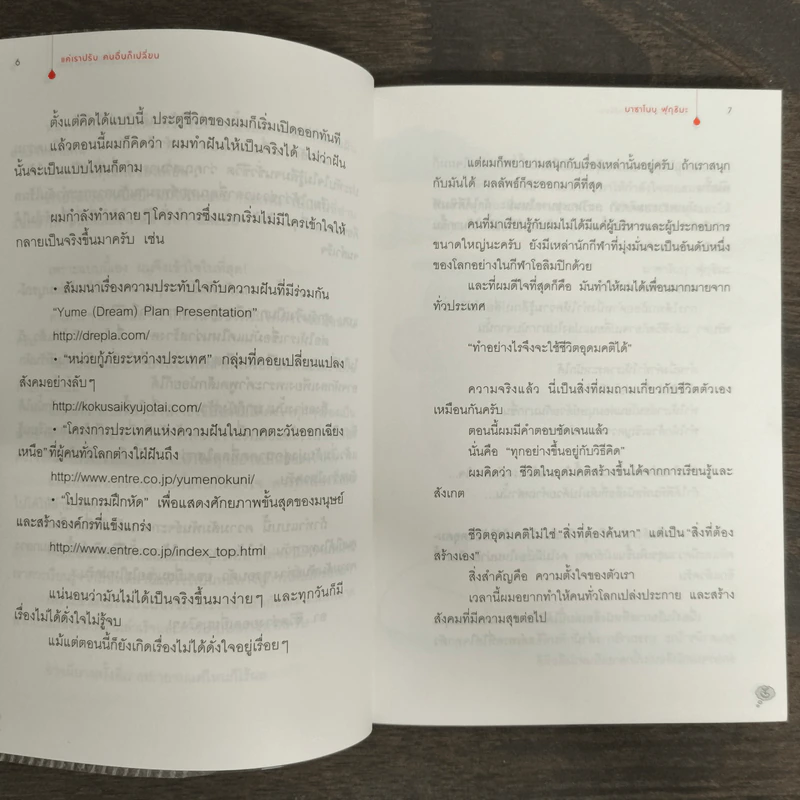 6
แค่เราปรับ คนอื่นก็เปลี่ยน
ตั้งแต่คิดได้แบบนี้ ประตูชีวิตของผมก็เริ่มเปิดออกทันที
แล้วตอนนี้ผมก็คิดว่า ผมทำฝันให้เป็นจริงได้ ไม่ว่าฝัน
นั้นจะเป็นแบบไหนก็ตาม
ผมกำลังทำหลายๆโครงการซึ่งแรกเริ่มไม่มีใครเข้าใจให้
กลายเป็นจริงขึ้นมาครับ เช่น
• สัมมนาเรื่องความประทับใจกับความฝันที่มีร่วมกัน
"Yume (Dream) Plan Presentation"
http://drepla.com/
• "หน่วยกู้ภัยระหว่างประเทศ" กลุ่มที่คอยเปลี่ยนแปลง
สังคมอย่างลับๆ
http://kokusaikyujotai.com/
• "โครงการประเทศแห่งความฝันในภาคตะวันออกเฉียง
เหนือ"ที่ผู้คนทั่วโลกต่างใฝ่ฝันถึง
http://www.entre.co.jp/yumenokuni/
• "โปรแกรมฝึกหัด" เพื่อแสดงศักยภาพขั้นสุดของมนุษย์
และสร้างองค์กรที่แข็งแกร่ง
http://www.entre.co.jp/index_top.html
แน่นอนว่ามันไม่ได้เป็นจริงขึ้นมาง่ายๆ และทุกวันก็มี
เรื่องไม่ได้ดั่งใจไม่รู้จบ
แม้แต่ตอนนี้ก็ยังเกิดเรื่องไม่ได้ดั่งใจอยู่เรื่อยๆ
มาซาโนบุ ฟุกุชิมะ
7
แต่ผมก็พยายามสนุกกับเรื่องเหล่านั้นอยู่ครับ ถ้าเราสนุก
กับมันได้ ผลลัพธ์ก็จะออกมาดีที่สุด
คนที่มาเรียนรู้กับผมไม่ได้มีแค่ผู้บริหารและผู้ประกอบการ
ขนาดใหญ่นะครับ ยังมีเหล่านักกีฬาที่มุ่งมั่นจะเป็นอันดับหนึ่ง
ของโลกอย่างในกีฬาโอลิมปิกด้วย
และที่ผมดีใจที่สุดก็คือ มันทำให้ผมได้เพื่อนมากมายจาก
ทั่วประเทศ
"ทำอย่างไรจึงจะใช้ชีวิตอุดมคติได้"
ความจริงแล้ว นี่เป็นสิ่งที่ผมถามเกี่ยวกับชีวิตตัวเอง
เหมือนกันครับ
ตอนนี้ผมมีคำตอบชัดเจนแล้ว
นั่นคือ "ทุกอย่างขึ้นอยู่กับวิธีคิด"
ผมคิดว่า ชีวิตในอุดมคติสร้างขึ้นได้จากการเรียนรู้และ
สังเกต
ชีวิตอุดมคติไม่ใช่"สิ่งที่ต้องค้นหา" แต่เป็น"สิ่งที่ต้อง
สร้างเอง"
สิ่งสำคัญคือ ความตั้งใจของตัวเรา
เวลานี้ผมอยากทำให้คนทั่วโลกเปล่งประกาย และสร้าง
สังคมที่มีความสุขต่อไป